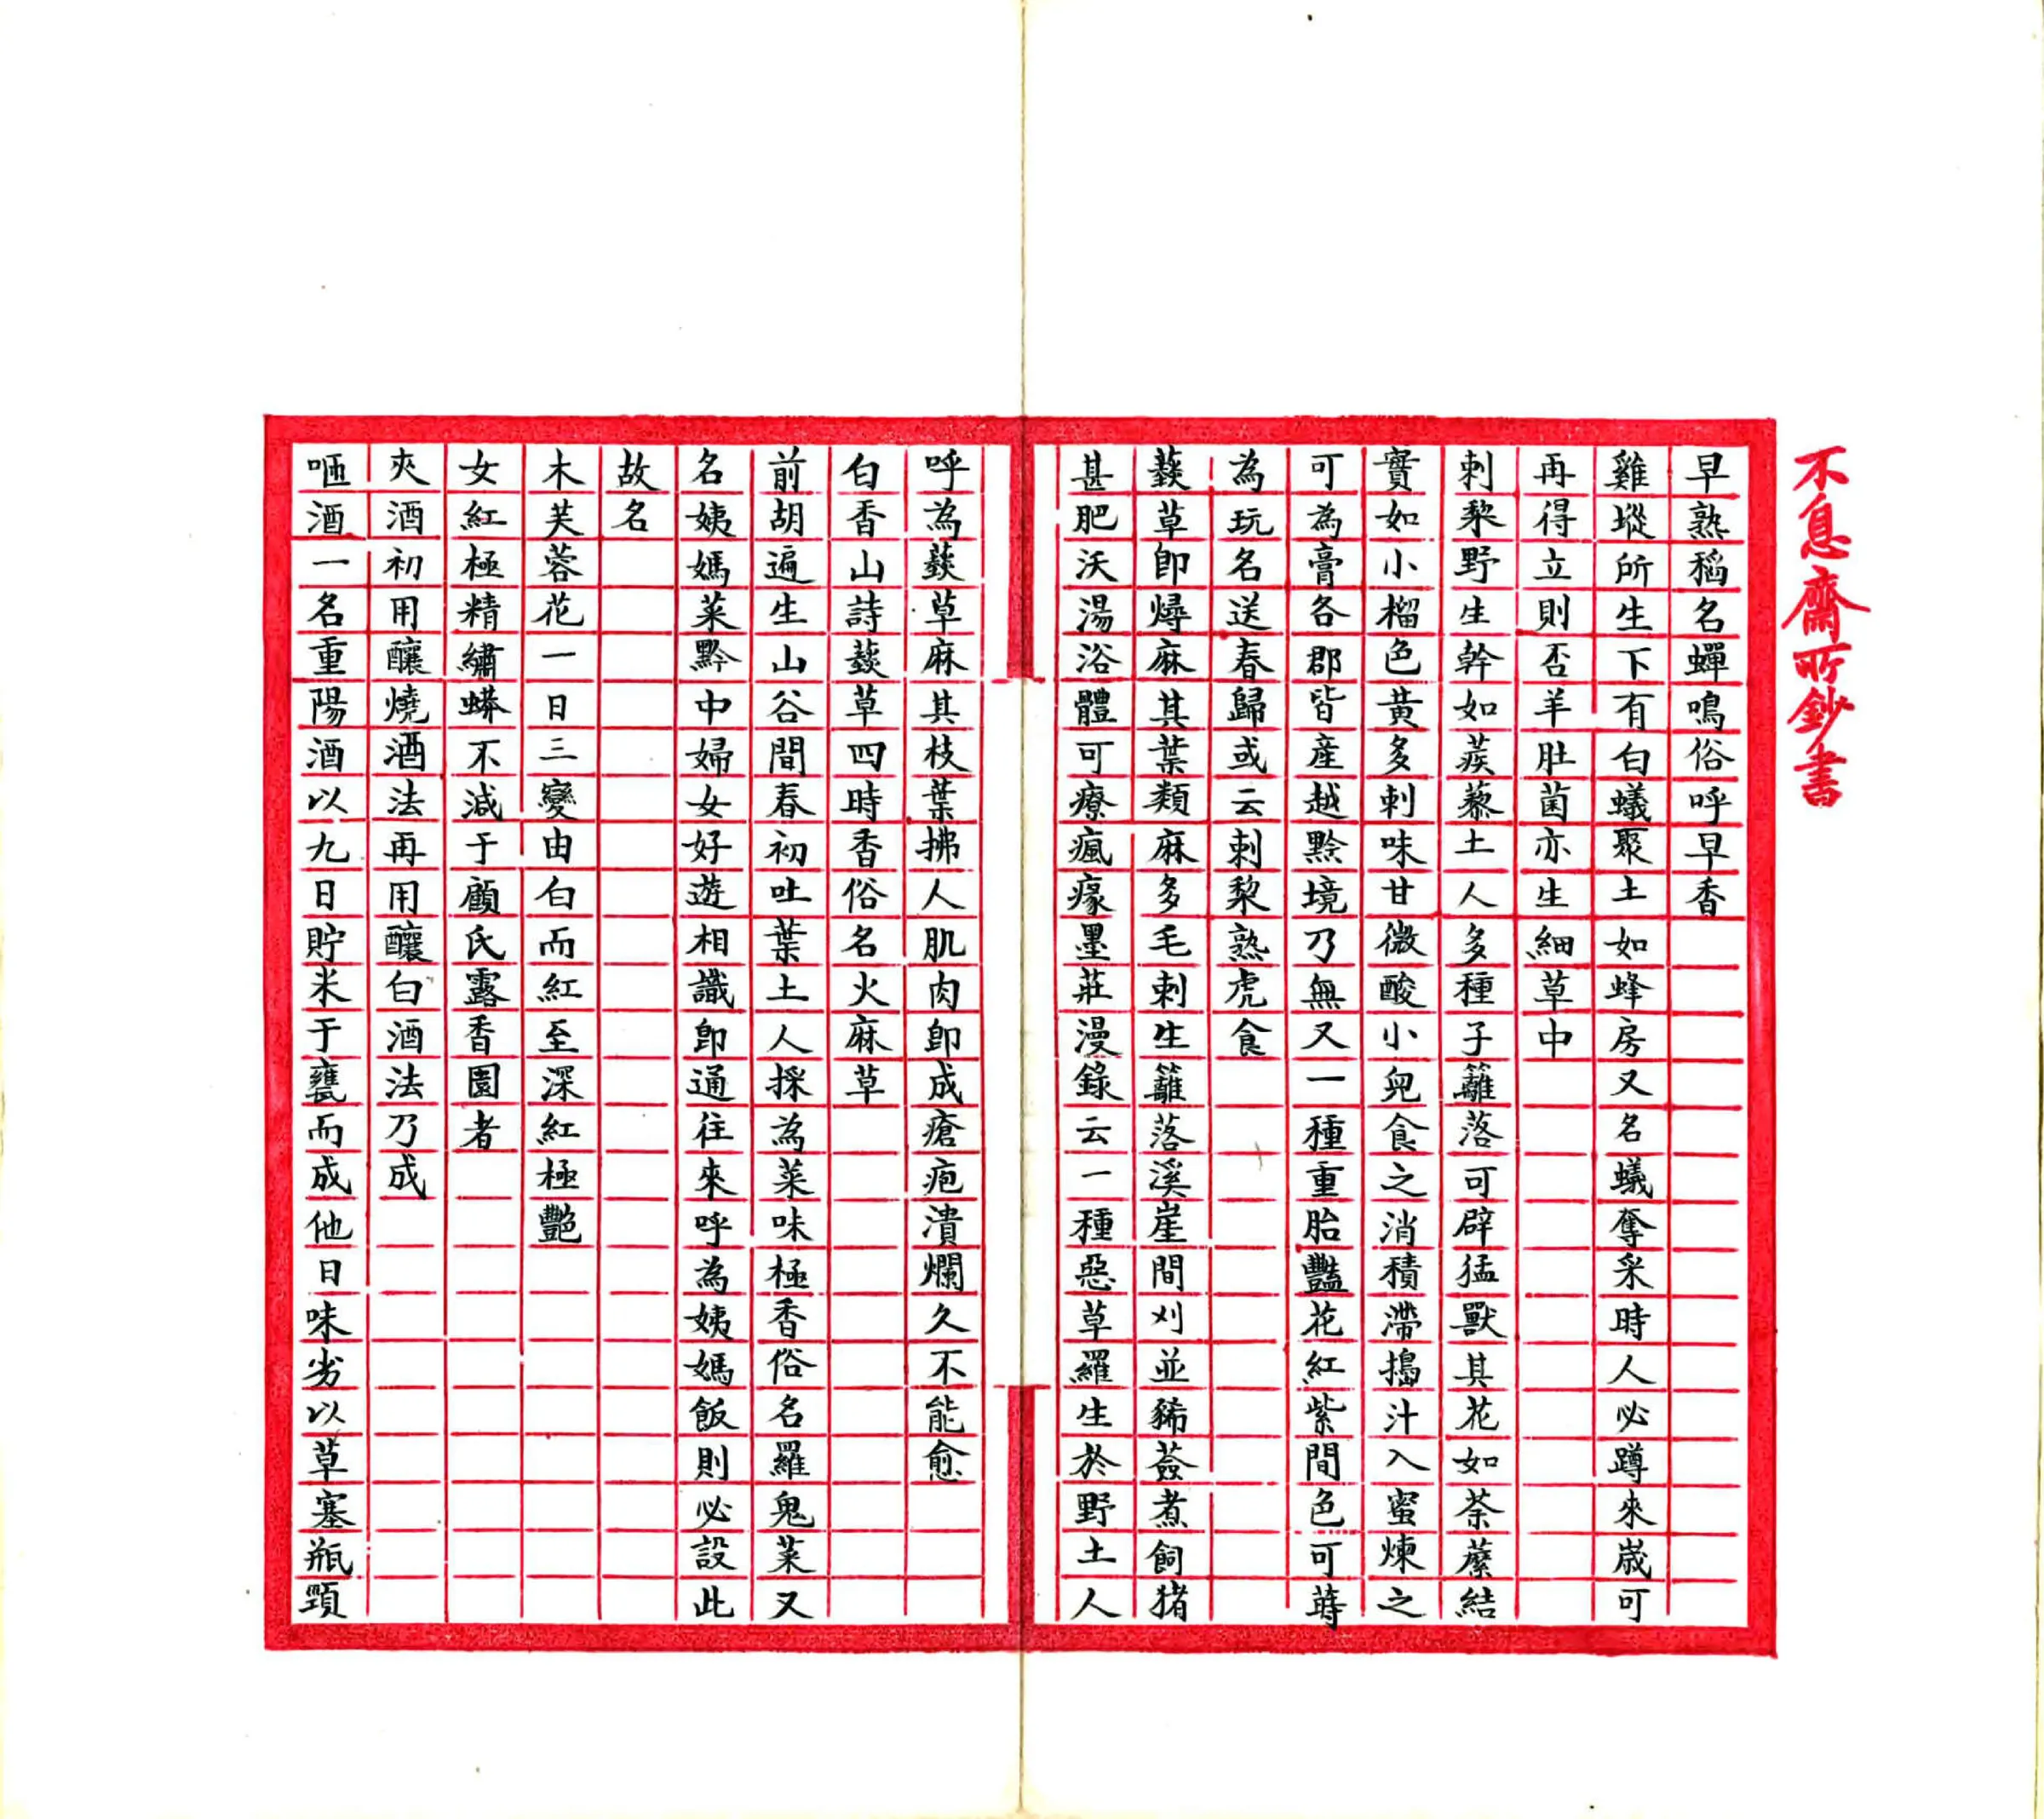 不息齋所鈔書
早熟稻名蟬鳴俗呼早香
雞㙡所生下有白蟻聚土如蜂房又名蟻奪采時人必蹲來歲可
再得立則否羊肚菌亦生細草中
刺棃野生幹如蒺藜土人多種子籬落可辟猛獸其花如荼蘼結
實如小榴色黃多刺味甘微酸小兒食之消積滯搗汁入蜜煉之
可為膏各郡皆產越黔境乃無又一種重胎豔花紅紫間色可蒔
為玩名送春歸或云刺棃熟虎食
蕁草卽燖麻其葉類麻多毛刺生籬落溪崖間刈並豨薟煮飼猪
甚肥沃湯浴體可療瘋瘃墨莊漫錄云一種惡草羅生於野土人
呼為蕁草麻其枝葉拂人肌肉卽成瘡疱潰爛久不能愈
白香山詩蕁草四時香俗名火麻草
前胡遍生山谷間春初吐葉土人採為菜味極香俗名羅鬼菜又
名姨媽菜黔中婦女好遊相識卽通往來呼為姨媽飯則必設此
故名
木芙蓉花一日三變由白而紅至深紅極艷
女紅極精繡蟒不減于顧氏露香園者
夾酒初用釀燒酒法再用釀白酒法乃成
咂酒一名重陽酒以九日貯米于甕而成他日味劣以草塞瓶頸